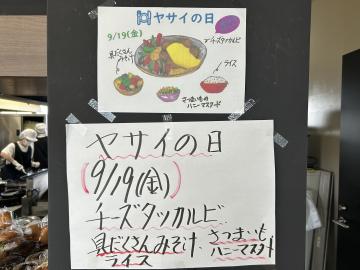 ヤサイの日
9/19(金)
チーズタッカルビ
具だくさん
みそ汁
ライス
さつまいもの
ハニーマスタード
ヤサイの日
(9/19(金))
チーズタッカルビ
具だくさんみそ汁・さつまいも
ライス ハニーマスタード